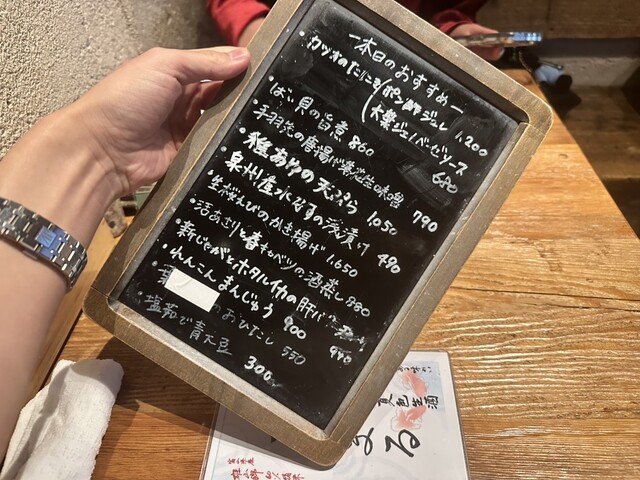 一本日のおすすめ一
・カツオのたたき(ポン酢ジュレ
大葉ジェノベーゼソース 1,200
・ばい貝の旨煮 860
手羽先の唐揚げ 落花生味噌 680
・稚あゆの天ぷら 790
・泉州産水なすの浅漬け
1,050
・生桜えびのかき揚げ 490
・活あさりと春キャベツの酒蒸し
1,650
・新じゃがとホタルイカの肝バター 880
・れんこんまんじゅう 900
990
葉 のおひたし 550
塩茹で青大豆 300
夏色生酒
る